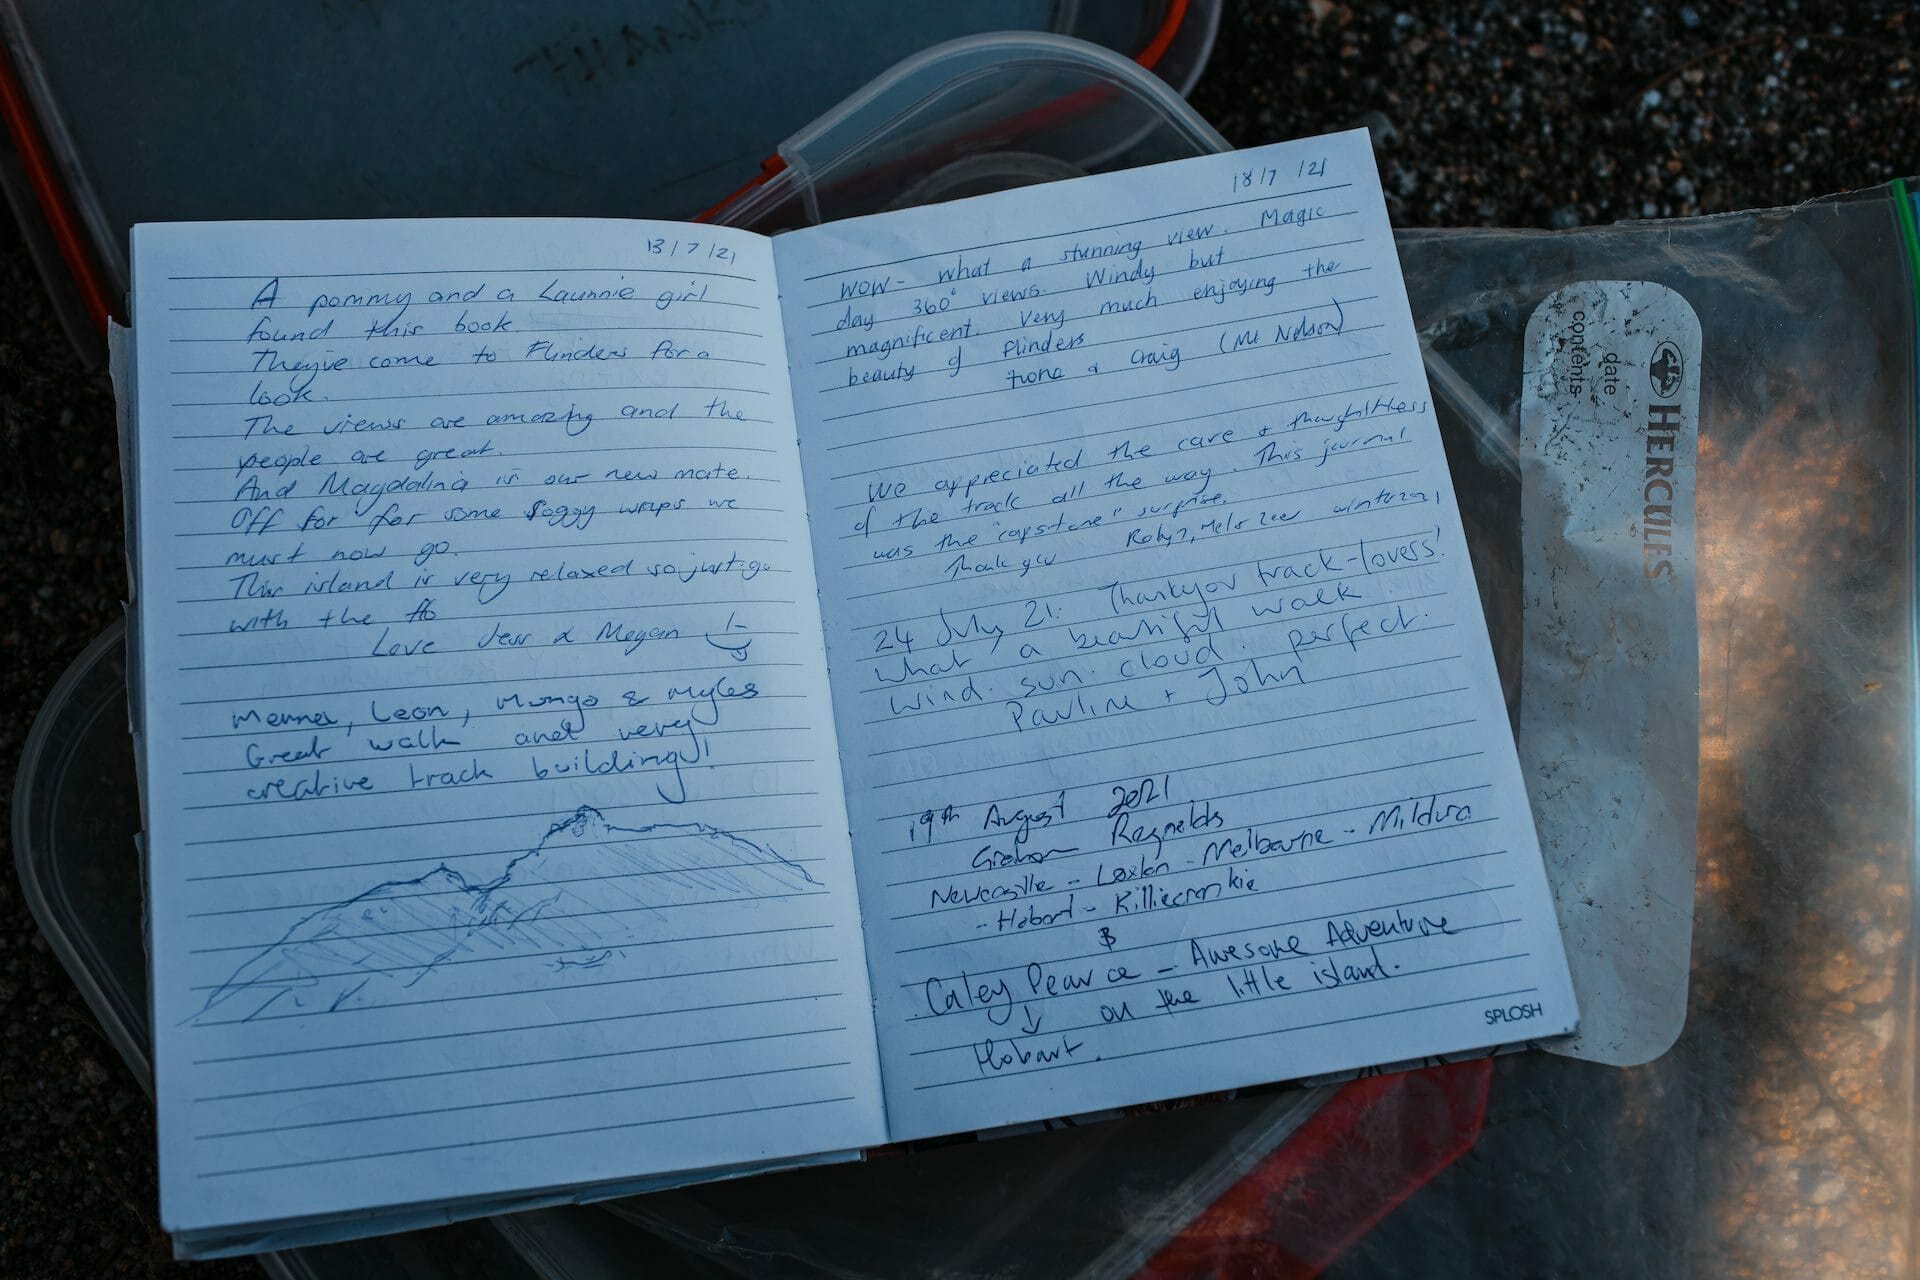 THANKS
13/7/21
A pommy and a Launnie girl
found this book.
They've come to Flinders for a
look.
The views are amazing and the
people are great.
And Magdalina is our new mate.
Off for for some soggy wraps we
must now go.
This island is very relaxed so just go
with the flo
Love Jess & Megan
Menna, Leon, Mungo & Myles
Great walk and very
creative track building!
18/7/21
WOW - what a stunning view. Magic
day 360° views. Windy but
magnificent. Very much enjoying the
beauty of Flinders
Fiona & Craig (Mt Nelson)
We appreciated the care & thoughtfulness
of the track all the way. This journal
was the "capstone" surprise.
Thank you winter 2021
24 July 21. Thankyou track-lovers!
what a beautiful walk.
wind. sun. cloud. perfect.
Pauline + John
19th August 2021
Graham Reynolds
Newcastle - Loxton - Melbourne - Mildura
- Hobart - Killiecrankie
&
Caley Pearce - Awesome Adventure
on the little island.
Hobart.
SPLOSH
HERCULES
date
contents